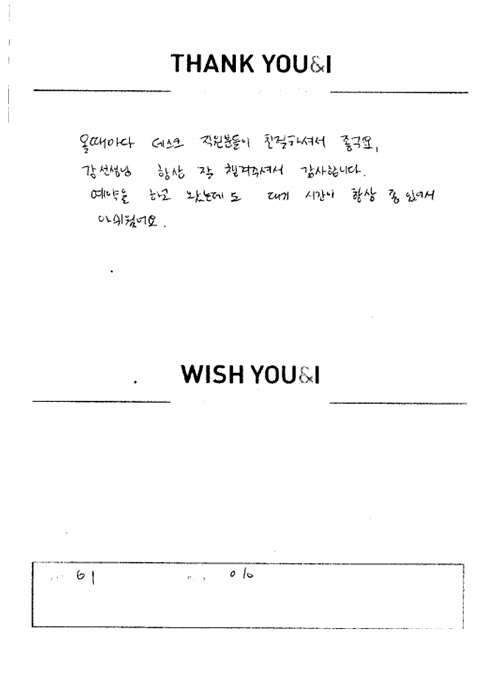 THANK YOU&I
올때마다 데스크 직원분들이 친절하셔서 좋구요,
강선생님 항상 잘 챙겨주셔서 감사합니다.
예약을 하고 왔는데도 대기 시간이 항상 좀 있어서
아쉬웠어요.
WISH YOU&I